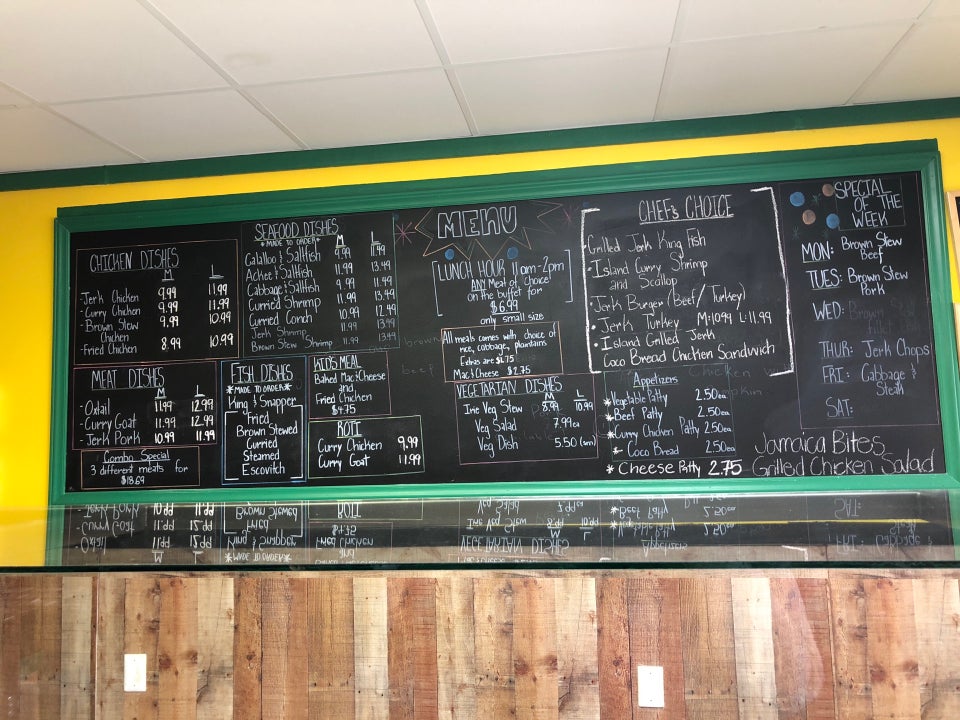 CHICKEN DISHES
M L
- Jerk Chicken 9.99 11.99
- Curry Chicken 9.99 11.99
- Brown Stew Chicken 9.99 10.99
- Fried Chicken 8.99 10.99
MEAT DISHES
M L
- Oxtail 11.99 12.99
- Curry Goat 11.99 12.99
- Jerk Pork 10.99 11.99
Combo Special
3 different meats for
$18.69
SEAFOOD DISHES
*MADE TO ORDER*
M L
Calaloo & Saltfish 9.99 11.99
Ackee & Saltfish 11.99 13.49
Cabbage & Saltfish 9.99 11.49
Curried Shrimp 11.99 13.49
Curried Conch 10.99 12.49
Jerk Shrimp 11.99 13.99
Brown Stew Shrimp 11.99 13.49
FISH DISHES
*MADE TO ORDER*
King & Snapper
Fried
Brown Stewed
Curried
Steamed
Escovitch
KID'S MEAL
Baked Mac & Cheese
and
Fried Chicken
$4.75
ROTI
Curry Chicken 9.99
Curry Goat 11.99
MENU
LUNCH HOUR 11am-2pm
ANY Meat of choice
on the buffet for
$6.99
only small size
All meals comes with choice of
rice, cabbage, plantains
Extras are $1.75
Mac & Cheese $2.75
VEGETARIAN DISHES
M L
Irie Veg Stew 8.99 10.99
Veg Salad 7.99ea
Veg Dish 5.50 (sm)
CHEF's CHOICE
• Grilled Jerk King Fish
• Island Curry Shrimp
and Scallop
• Jerk Burger (Beef/Turkey)
• Jerk Turkey M:10.99 L:11.99
• Island Grilled Jerk
Coco Bread Chicken Sandwich
Appetizers
* Vegetable Patty 2.50ea
* Beef Patty 2.50ea
* Curry Chicken Patty 2.50ea
* Coco Bread 2.50ea
* Cheese Patty 2.75
SPECIAL
OF THE
WEEK
MON: Brown Stew
Beef
TUES: Brown Stew
Pork
WED:
THUR: Jerk Chops
FRI: Cabbage &
Steak
SAT:
Jamaica Bites
Grilled Chicken Salad